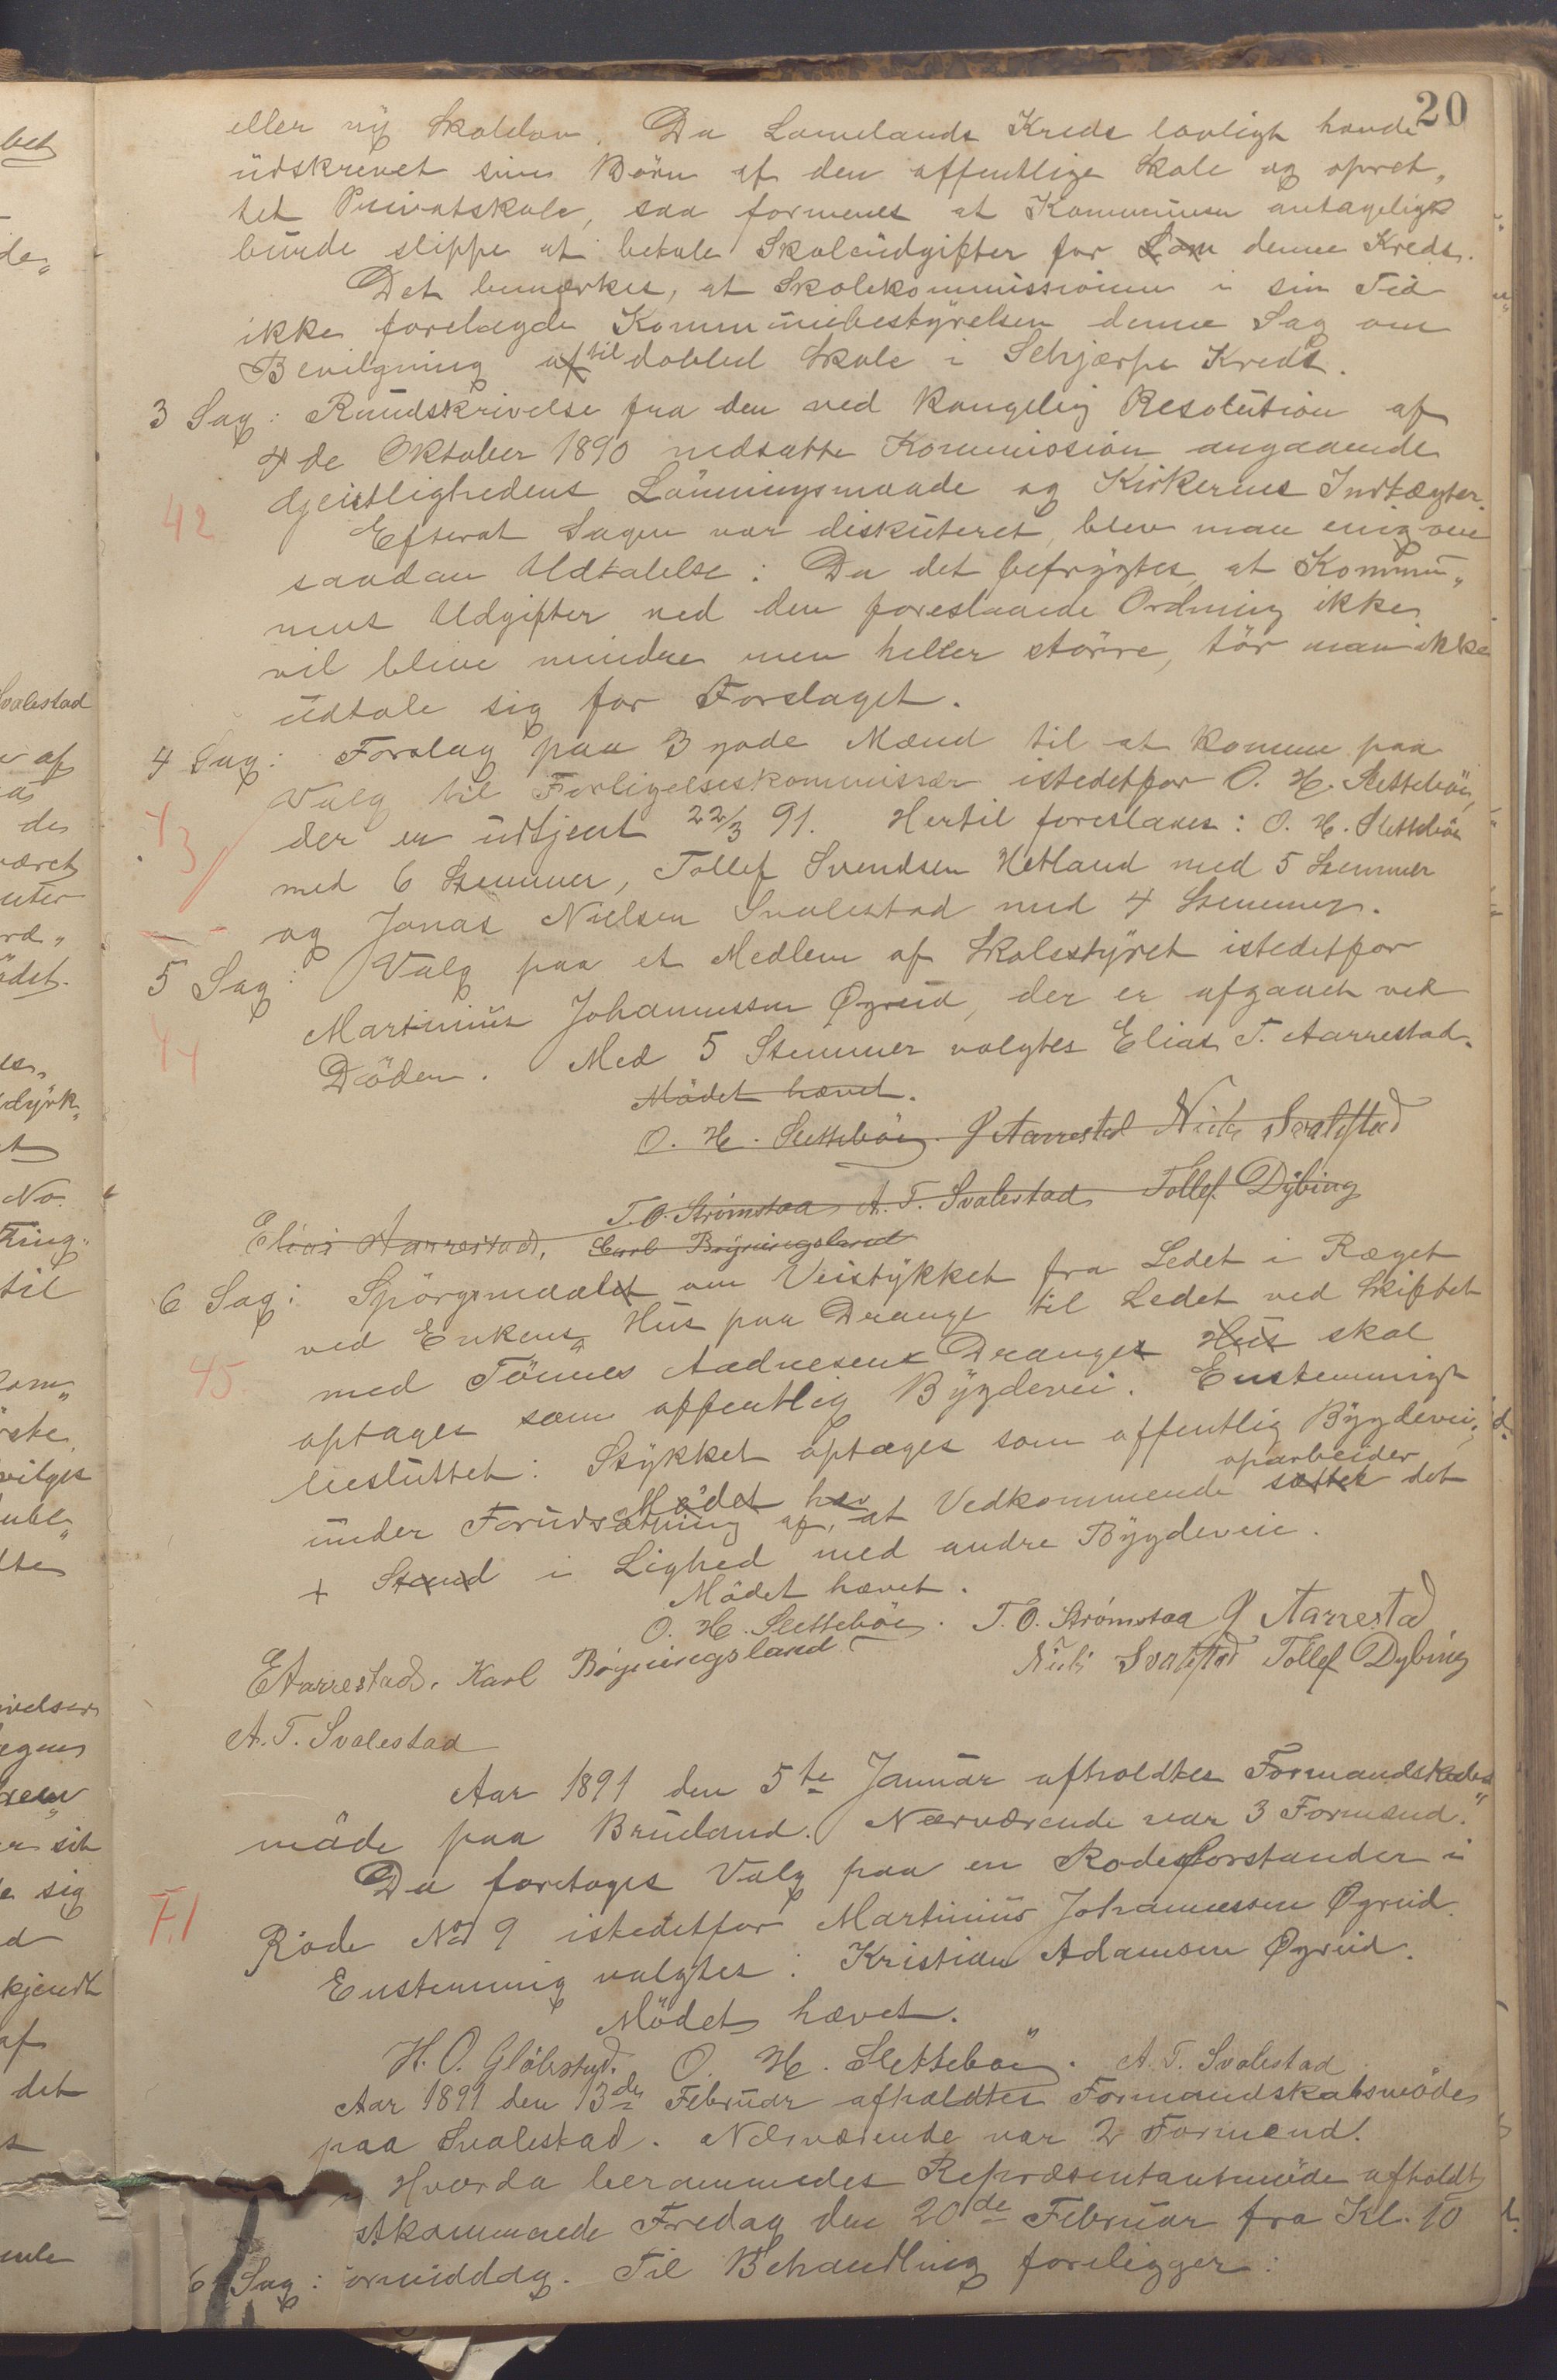 20
eller ny Skolelov. Da Lomelands Kreds lovligt havde
udskrevet sine Börn af den offentlige Skole og opret„
tet Privatskole, saa formenes at Kommunen antageligt
burde slippe at betale Skoleudgifter for Lom denne Kreds.
Det bemærkes, at Skolekommissionen i sin Tid
ikke forelagde Kommunebestyrelsen denne Sag om
Bevilgning af til dobbel Skole i Schjærpe Kreds.
3 Sag: Rundskrivelse fra den ved Kongelig Resolution af
4de Oktober 1890 nedsatte Kommission angaaende
Gjeistlighedens Lönningsmaade og Kirkernes Indtægter.
42
Efterat Sagen var diskuteret, blev man enig om
saadan Udtalelse: Da det befrygtes, at Kommu„
nens Udgifter ved den foreslaaede Ordning ikke
vil blive mindre men heller större, tör man ikke
udtale sig for Forslaget.
4 Sag: Forslag paa 3 gode Mænd til at komme paa
Valg til Forligelseskommissær istedetfor O. H. Sletteböe,
43
der er udtjent 22/3 91. Hertil foreslaaes: O. H. Sletteböe
med 6 Stemmer, Tollef Svendsen Hetland med 5 Stemmer
og Jonas Nielsen Svalestad med 4 Stemmer.
5 Sag: Valg paa et Medlem af Skolestyret istedetfor
Martinius Johannessen Øgreid, der er afgaaet ved
44
Döden. Med 5 Stemmer valgtes Elias T. Aarrestad.
Mödet hævet.
O. H. Sletteböe. P Aarrestad Niels Svalestad
T. O. Strömstaa A. T. Svalestad Tollef Dybing
Elias Aarrestad, Carl Bögningsland
6 Sag: Spörgsmaalet om Veistykket fra Ledet i Ræget
ved Enkens Hus paa Drange til Ledet ved Skiftet
45.
med Tönnes Aadnesens Dranges Hus skal
optages som offentlig Bygdevei. Enstemmigt
besluttet: Stykket optages som offentlig Bygdevei,
Mödet hæv oparbeider
under Forudsætning af, at Vedkommende sætter det
+ Stand i Lighed med andre Bygdeveie.
Mödet hævet.
O. H. Sletteböe. T. O. Strömstaa P Aarrestad
E Aarrestad. Karl Bögningsland Niels Svalestad Tollef Dybing
A. T. Svalestad
Aar 1891 den 5te Januar afholdtes Formandskabs„
möde paa Brüland. Nærværende var 3 Formænd.
Da foretages Valg paa en Rodesforstander i
F.1
Rode No 9 istedetfor Martinius Johannessen Øgreid.
Enstemmig valgtes: Kristian Adamsen Øgreid.
Mödet hævet.
H. O. Glöbstad. O. H. Sletteböe. A. T. Svalestad
Aar 1891 den 13de Februar afholdtes Formandskabsmöde
paa Svalestad. Nærværende var 2 Formænd.
Hvorda berammedes Repræsentantmöde afholdt
stkommende Fredag den 20de Februar fra Kl. 10
6 Sag: ormiddag. Til Behandling foreligger: